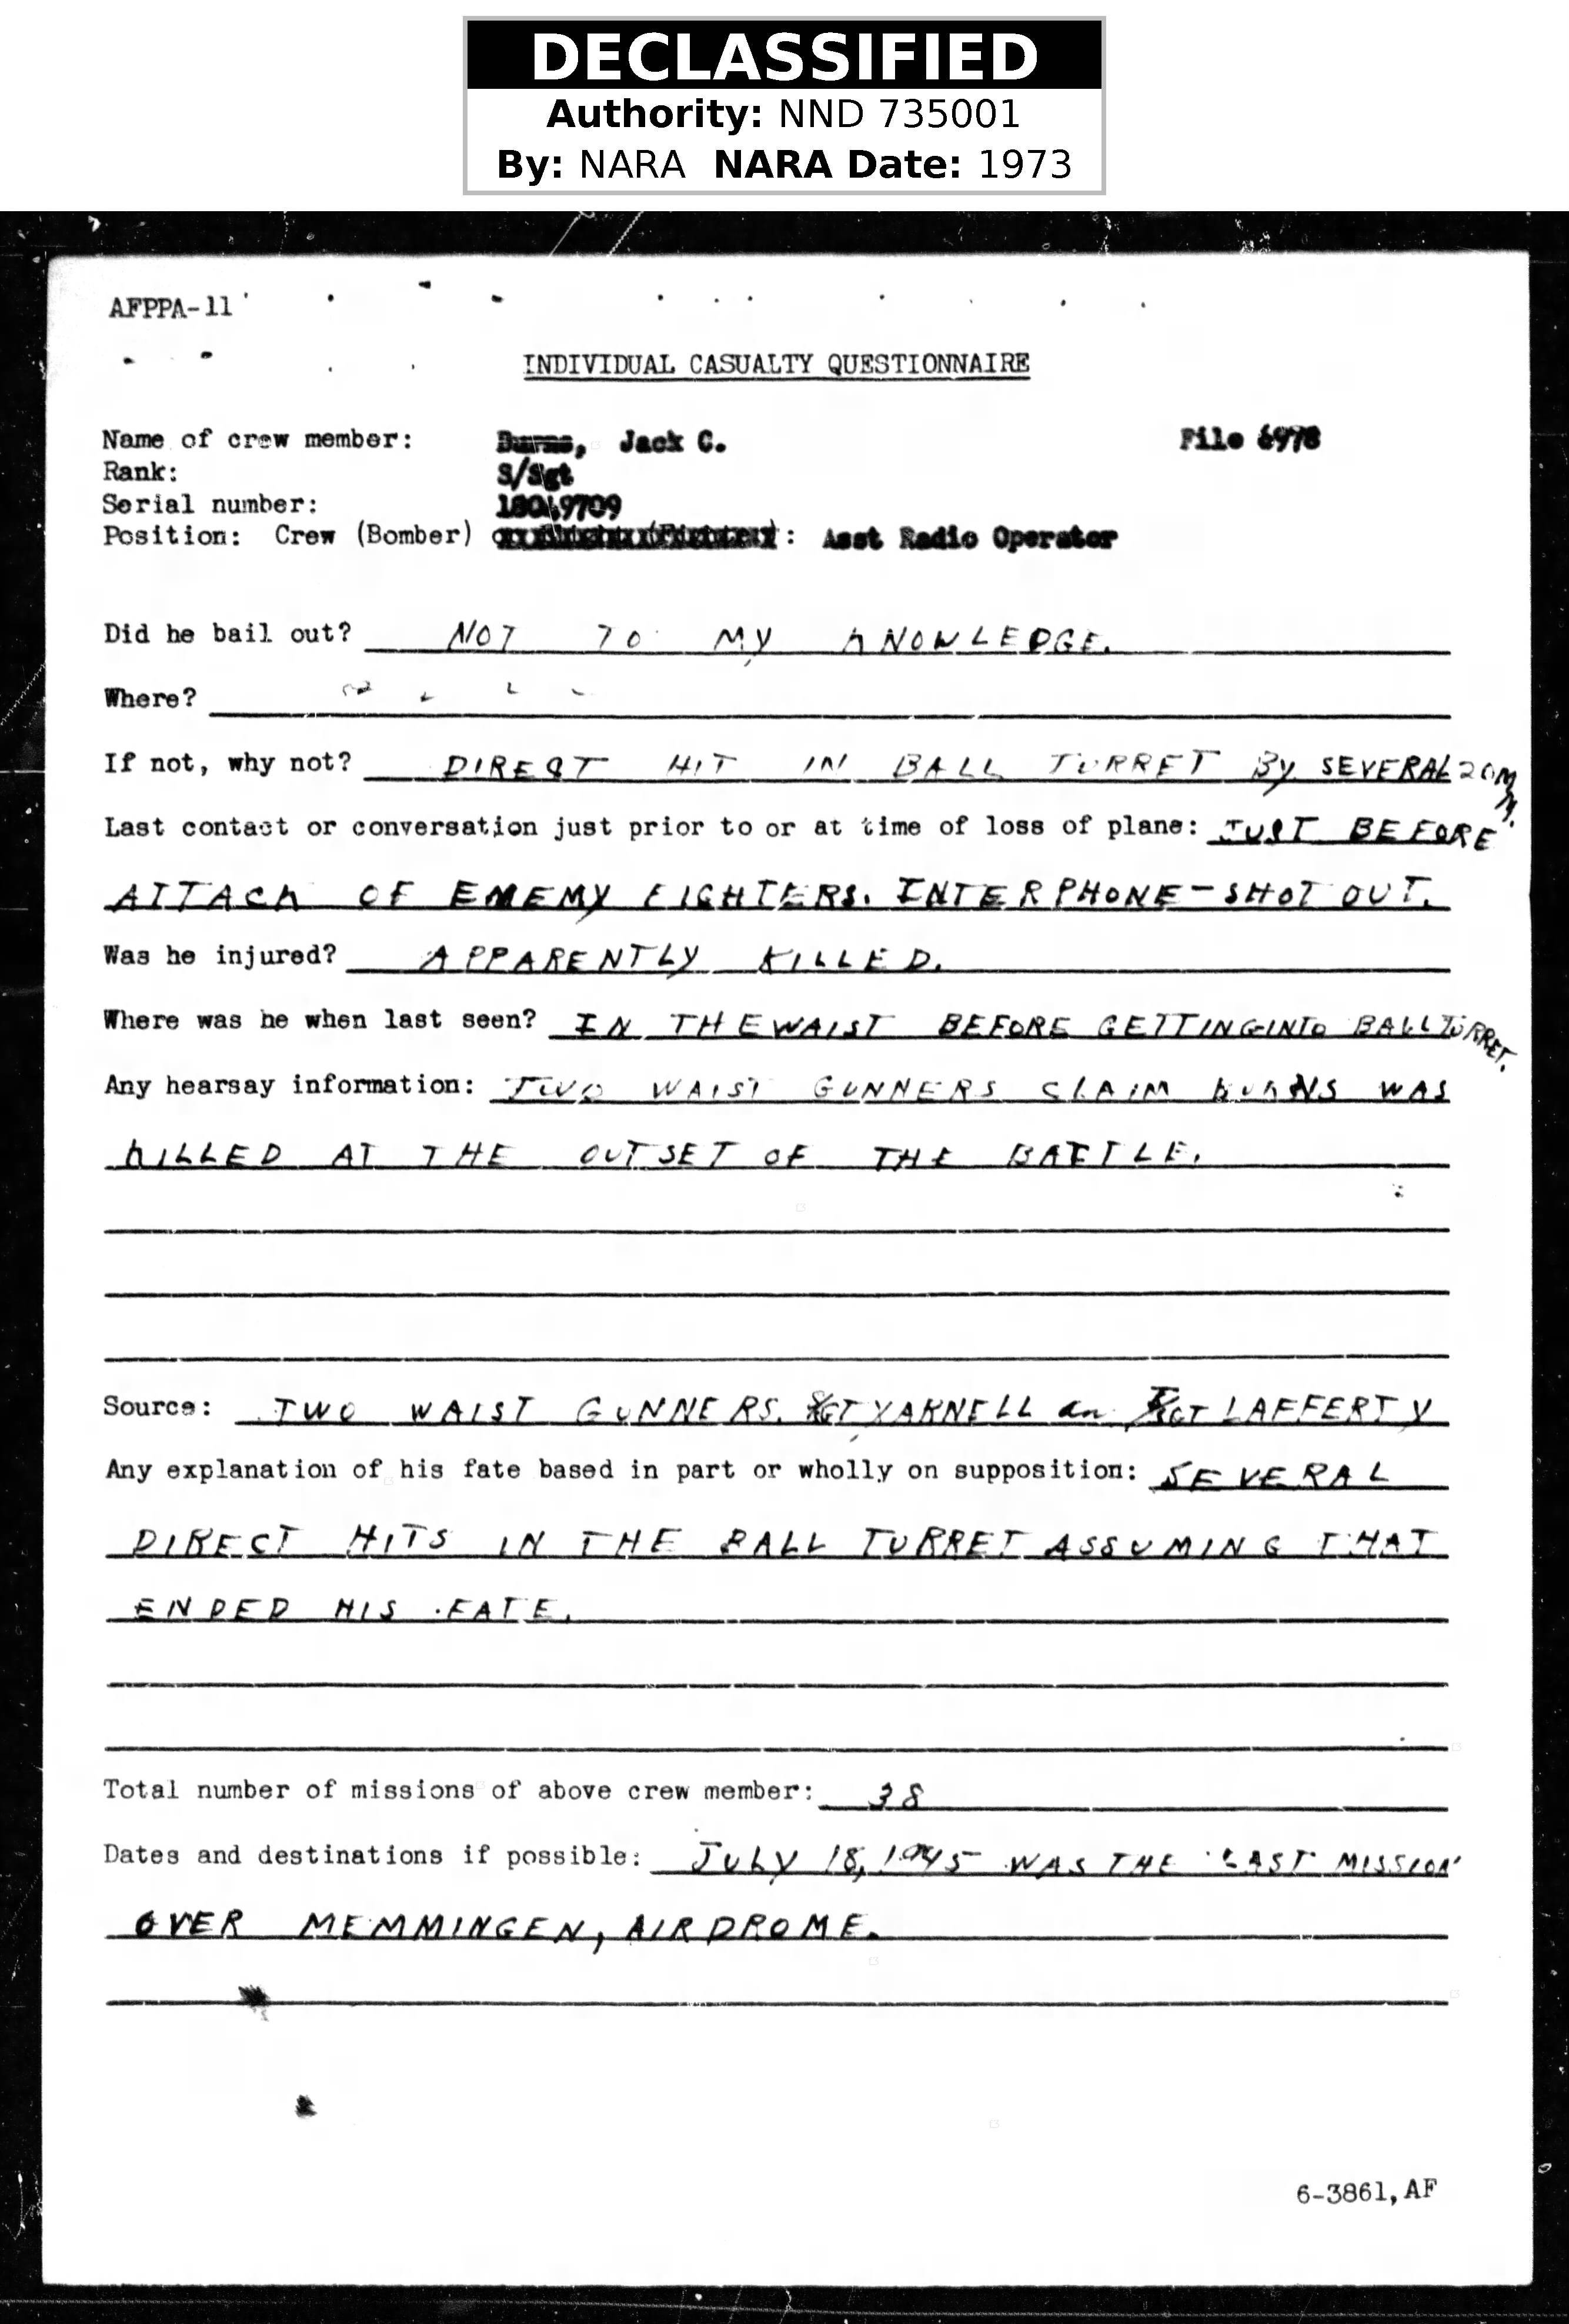 DECLASSIFIED
Authority: NND 735001
By: NARA NARA Date: 1973
AFPPA-11
INDIVIDUAL CASUALTY QUESTIONNAIRE
Name of crew member: Burns, Jack C. File 6978
Rank: S/Sgt
Serial number: 18049709
Position: Crew (Bomber) : Asst Radio Operator
Did he bail out? NOT TO MY KNOWLEDGE.
Where?
If not, why not? DIRECT HIT IN BALL TURRET BY SEVERAL 20MM.
Last contact or conversation just prior to or at time of loss of plane: JUST BEFORE
ATTACK OF EMEMY FIGHTERS. INTERPHONE-SHOT OUT.
Was he injured? APPARENTLY KILLED.
Where was he when last seen? IN THE WAIST BEFORE GETTING INTO BALL TURRET.
Any hearsay information: TWO WAIST GUNNERS CLAIM BURNS WAS
KILLED AT THE OUTSET OF THE BATTLE.
Source: TWO WAIST GUNNERS. SGT YARNELL an SGT LAFFERTY
Any explanation of his fate based in part or wholly on supposition: SEVERAL
DIRECT HITS IN THE BALL TURRET ASSUMING THAT
ENDED HIS FATE.
Total number of missions of above crew member: 38
Dates and destinations if possible: JULY 18, 1945 WAS THE LAST MISSION
OVER MEMMINGEN, AIRDROME.
6-3861, AF